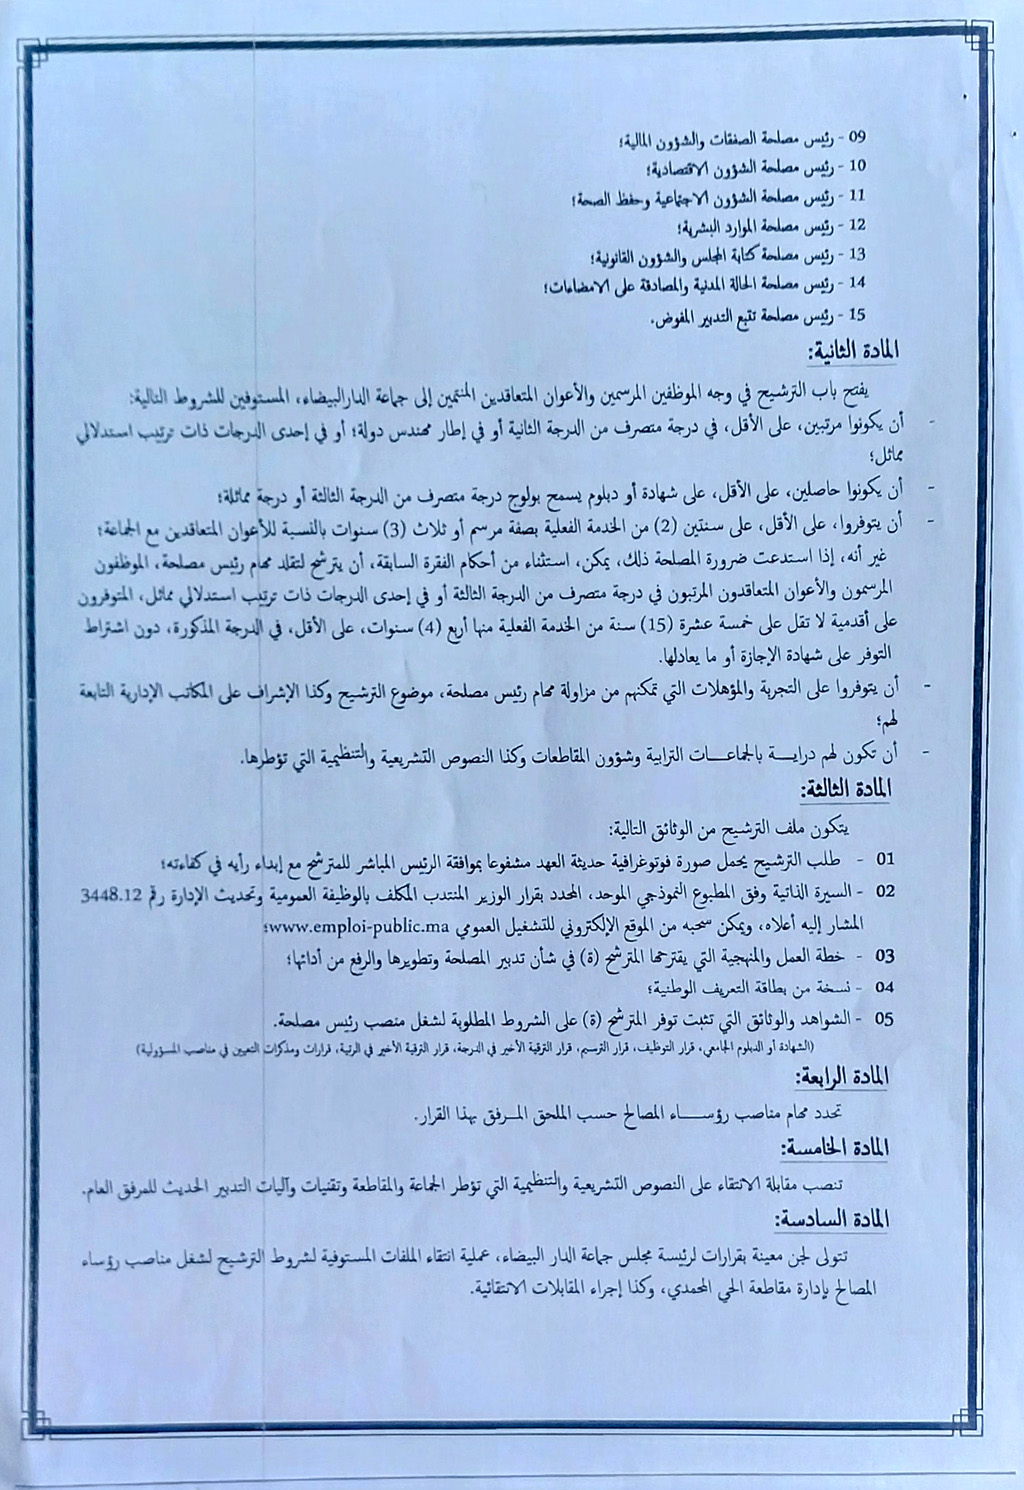 09 - رئيس مصلحة الصفقات والشؤون المالية؛
10 - رئيس مصلحة الشؤون الاقتصادية؛
11 - رئيس مصلحة الشؤون الاجتماعية وحفظ الصحة؛
12 - رئيس مصلحة الموارد البشرية؛
13 - رئيس مصلحة كتابة المجلس والشؤون القانونية؛
14 - رئيس مصلحة الحالة المدنية والمصادقة على الامضاءات؛
15 - رئيس مصلحة تتبع التدبير المفوض.
المادة الثانية:
يفتح باب الترشيح في وجه الموظفين المرسمين والأعوان المتعاقدين المنتمين إلى جماعة الدارالبيضاء، المستوفين للشروط التالية:
- أن يكونوا مرتبين، على الأقل، في درجة متصرف من الدرجة الثانية أو في إطار مهندس دولة؛ أو في إحدى الدرجات ذات ترتيب استدلالي
مماثل؛
- أن يكونوا حاصلين، على الأقل، على شهادة أو دبلوم يسمح بولوج درجة متصرف من الدرجة الثالثة أو درجة مماثلة؛
- أن يتوفروا، على الأقل، على سنتين (2) من الخدمة الفعلية بصفة مرسم أو ثلاث (3) سنوات بالنسبة للأعوان المتعاقدين مع الجماعة؛
غير أنه، إذا استدعت ضرورة المصلحة ذلك، يمكن، استثناء من أحكام الفقرة السابقة، أن يترشح لتقلد مهام رئيس مصلحة، الموظفون
المرسمون والأعوان المتعاقدون المرتبون في درجة متصرف من الدرجة الثالثة أو في إحدى الدرجات ذات ترتيب استدلالي مماثل، المتوفرون
على أقدمية لا تقل على خمسة عشرة (15) سنة من الخدمة الفعلية منها أربع (4) سنوات، على الأقل، في الدرجة المذكورة، دون اشتراط
التوفر على شهادة الإجازة أو ما يعادلها.
- أن يتوفروا على التجربة والمؤهلات التي تمكنهم من مزاولة مهام رئيس مصلحة، موضوع الترشيح وكذا الإشراف على المكاتب الإدارية التابعة
لهم؛
- أن تكون لهم درايـــة بالجماعـــات الترابية وشؤون المقاطعات وكذا النصوص التشريعية والتنظيمية التي تؤطرها.
المادة الثالثة:
يتكون ملف الترشيح من الوثائق التالية:
01 - طلب الترشيح يحمل صورة فوتوغرافية حديثة العهد مشفوعا بموافقة الرئيس المباشر للمترشح مع إبداء رأيه في كفاءته؛
02 - السيرة الذاتية وفق المطبوع النموذجي الموحد، المحدد بقرار الوزير المنتدب المكلف بالوظيفة العمومية وتحديث الإدارة رقم 3448.12
المشار إليه أعلاه، ويمكن سحبه من الموقع الإلكتروني للتشغيل العمومي www.emploi-public.ma؛
03 - خطة العمل والمنهجية التي يقترحها المترشح (ة) في شأن تدبير المصلحة وتطويرها والرفع من أدائها؛
04 - نسخة من بطاقة التعريف الوطنية؛
05 - الشواهد والوثائق التي تثبت توفر المترشح (ة) على الشروط المطلوبة لشغل منصب رئيس مصلحة.
(الشهادة أو الدبلوم الجامعي، قرار التوظيف، قرار الترسيم، قرار الترقية الأخير في الدرجة، قرار الترقية الأخير في الرتبة، قرارات ومذكرات التعيين في مناصب المسؤولية)
المادة الرابعة:
تحدد مهام مناصب رؤســـاء المصالح حسب الملحق المـــرفق بهذا القرار.
المادة الخامسة:
تنصب مقابلة الانتقاء على النصوص التشريعية والتنظيمية التي تؤطر الجماعة والمقاطعة وتقنيات وآليات التدبير الحديث للمرفق العام.
المادة السادسة:
تتولى لجن معينة بقرارات لرئيسة مجلس جماعة الدار البيضاء، عملية انتقاء الملفات المستوفية لشروط الترشيح لشغل مناصب رؤساء
المصالح بإدارة مقاطعة الحي المحمدي، وكذا إجراء المقابلات الانتقائية.